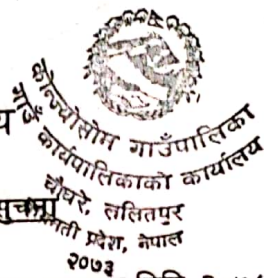 कोन्ज्योसोम गाउँपालिका
गाउँ कार्यपालिकाको कार्यालय
चौघरे, ललितपुर
सुचना
प्रदेश, नेपाल
२०७३